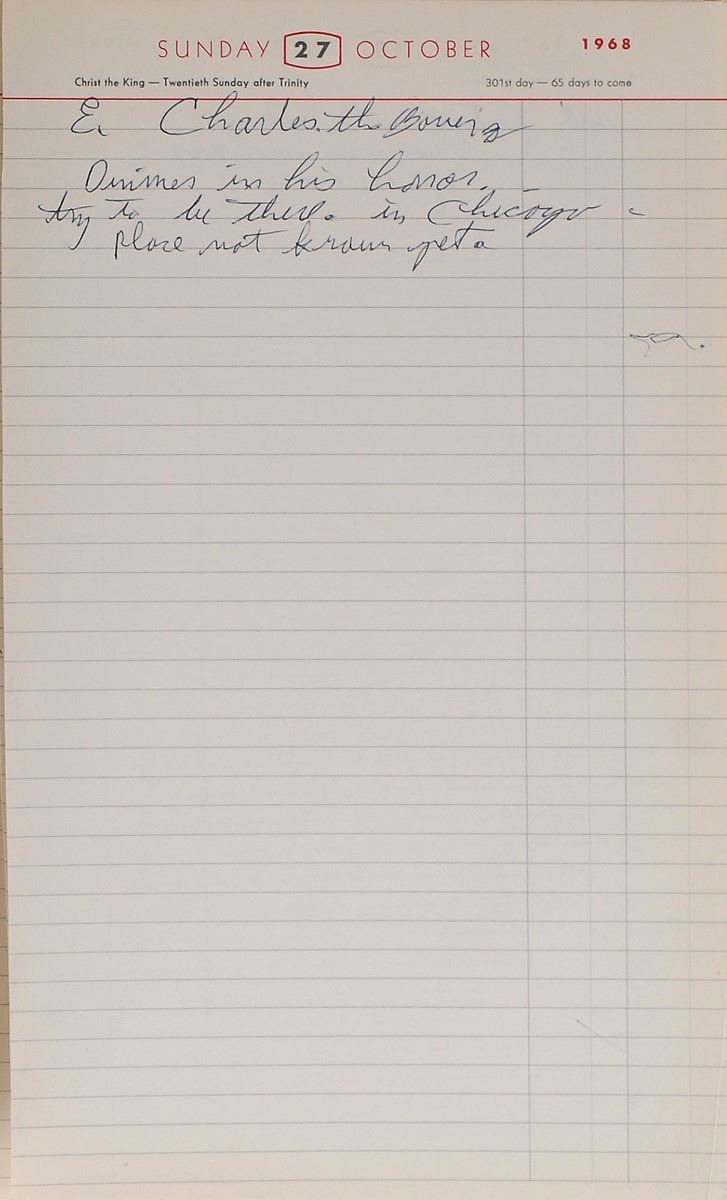 SUNDAY 27 OCTOBER 1968
Christ the King — Twentieth Sunday after Trinity 301st day — 65 days to come
E. Charles. th
Dinner in his honor.
try to be there. in Chicago
place not known yet.